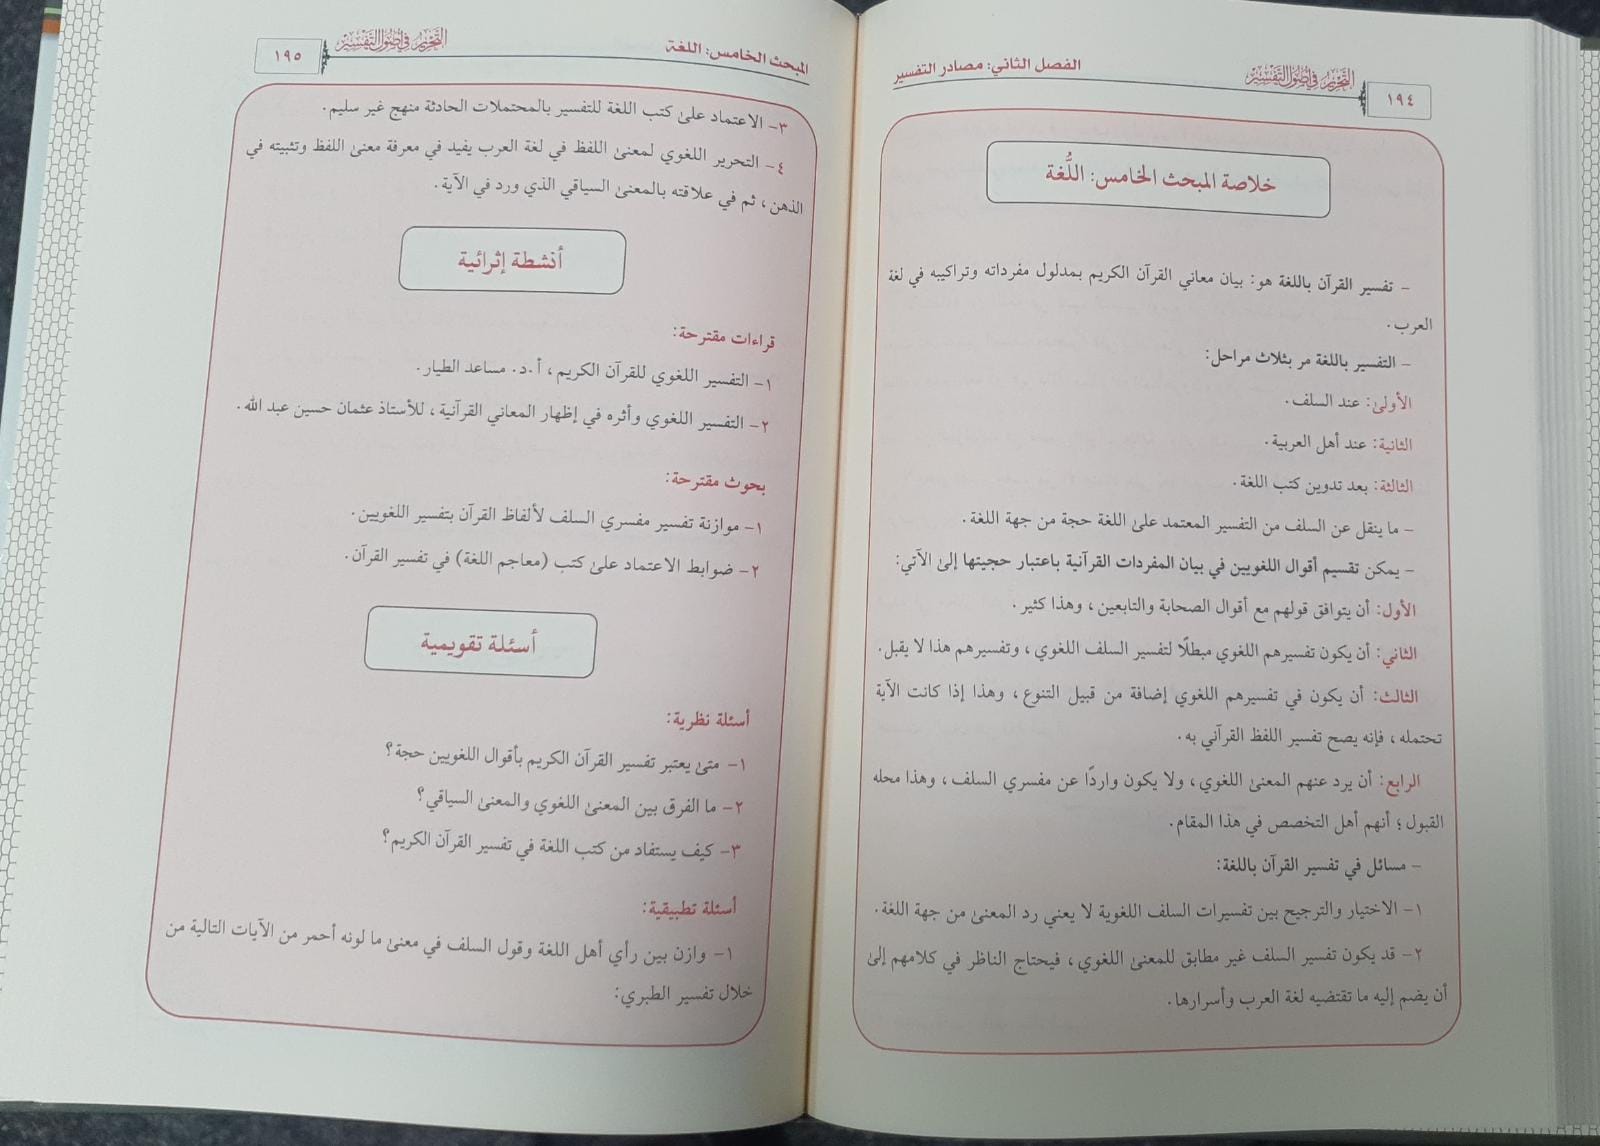 التحرير في أصول التفسير
١٩٤
الفصل الثاني: مصادر التفسير
خلاصة المبحث الخامس: اللُّغة
- تفسير القرآن باللغة هو: بيان معاني القرآن الكريم بمدلول مفرداته وتراكيبه في لغة
العرب.
- التفسير باللغة مر بثلاث مراحل:
الأولىٰ: عند السلف.
الثانية: عند أهل العربية.
الثالثة: بعد تدوين كتب اللغة.
- ما ينقل عن السلف من التفسير المعتمد علىٰ اللغة حجة من جهة اللغة.
- يمكن تقسيم أقوال اللغويين في بيان المفردات القرآنية باعتبار حجيتها إلىٰ الآتي:
الأول: أن يتوافق قولهم مع أقوال الصحابة والتابعين، وهذا كثير.
الثاني: أن يكون تفسيرهم اللغوي مبطلًا لتفسير السلف اللغوي، وتفسيرهم هذا لا يقبل.
الثالث: أن يكون في تفسيرهم اللغوي إضافة من قبيل التنوع، وهذا إذا كانت الآية
تحتمله، فإنه يصح تفسير اللفظ القرآني به.
الرابع: أن يرد عنهم المعنىٰ اللغوي، ولا يكون واردًا عن مفسري السلف، وهذا محله
القبول؛ أنهم أهل التخصص في هذا المقام.
- مسائل في تفسير القرآن باللغة:
١- الاختيار والترجيح بين تفسيرات السلف اللغوية لا يعني رد المعنىٰ من جهة اللغة.
٢- قد يكون تفسير السلف غير مطابق للمعنىٰ اللغوي، فيحتاج الناظر في كلامهم إلىٰ
أن يضم إليه ما تقتضيه لغة العرب وأسرارها.
المبحث الخامس: اللغة
التحرير في أصول التفسير
١٩٥
٣- الاعتماد علىٰ كتب اللغة للتفسير بالمحتملات الحادثة منهج غير سليم.
٤- التحرير اللغوي لمعنىٰ اللفظ في لغة العرب يفيد في معرفة معنىٰ اللفظ وتثبيته في
الذهن، ثم في علاقته بالمعنىٰ السياقي الذي ورد في الآية.
أنشطة إثرائية
قراءات مقترحة:
١- التفسير اللغوي للقرآن الكريم، أ.د. مساعد الطيار.
٢- التفسير اللغوي وأثره في إظهار المعاني القرآنية، للأستاذ عثمان حسين عبد الله.
بحوث مقترحة:
١- موازنة تفسير مفسري السلف لألفاظ القرآن بتفسير اللغويين.
٢- ضوابط الاعتماد علىٰ كتب (معاجم اللغة) في تفسير القرآن.
أسئلة تقويمية
أسئلة نظرية:
١- متىٰ يعتبر تفسير القرآن الكريم بأقوال اللغويين حجة؟
٢- ما الفرق بين المعنىٰ اللغوي والمعنىٰ السياقي؟
٣- كيف يستفاد من كتب اللغة في تفسير القرآن الكريم؟
أسئلة تطبيقية:
١- وازن بين رأي أهل اللغة وقول السلف في معنىٰ ما لونه أحمر من الآيات التالية من
خلال تفسير الطبري: